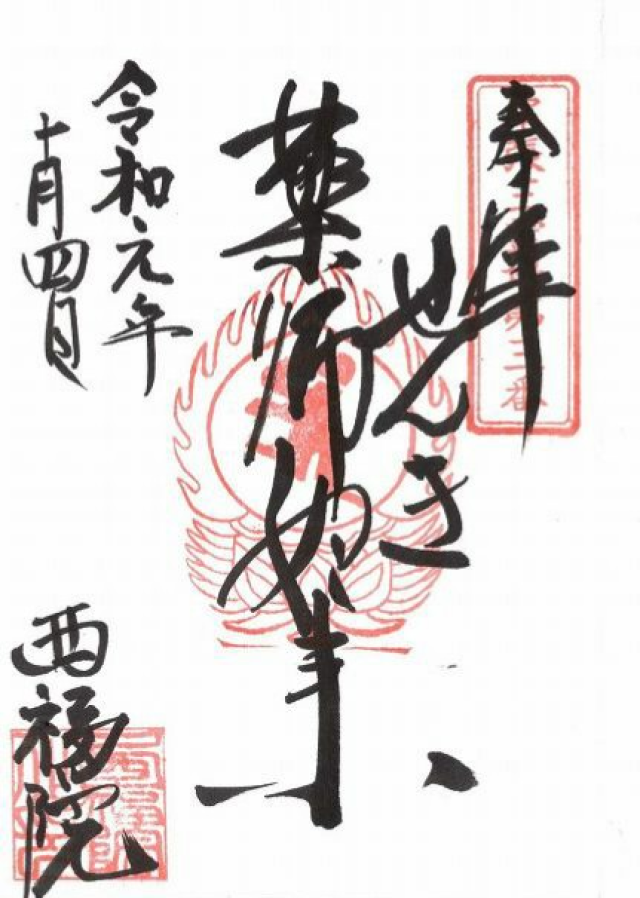 奉拝
せんき
薬師如来
令和元年
十月四日
西福院